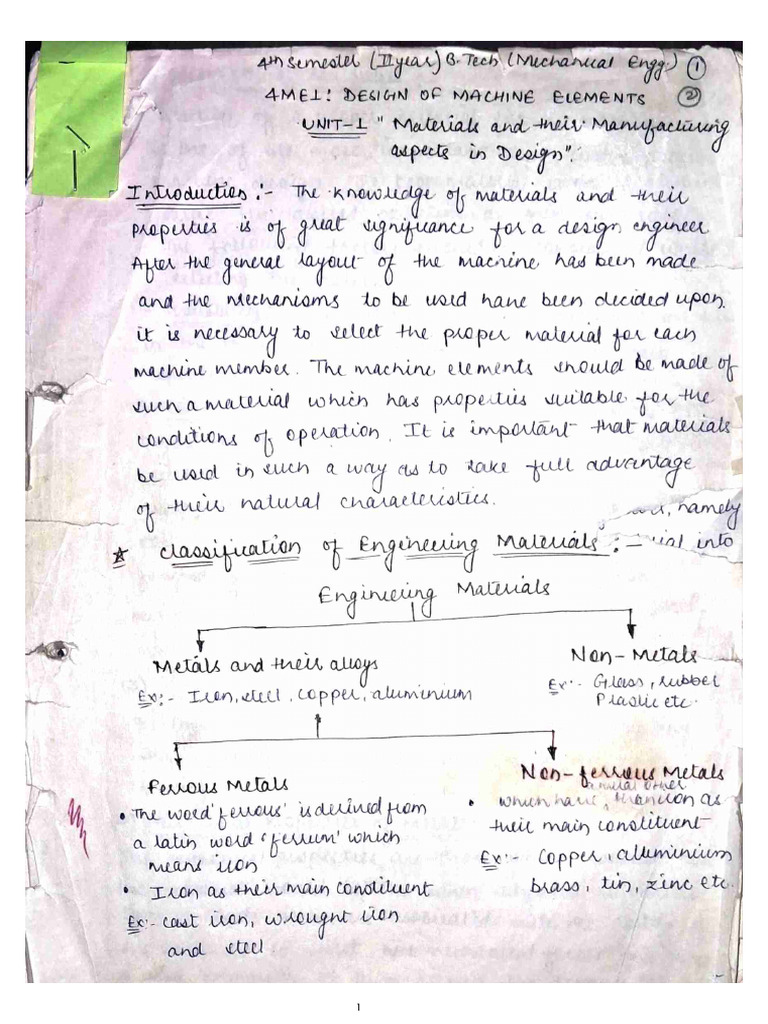 4th Semester (II year) B.Tech (Mechanical Engg.) 1
4ME1: DESIGN OF MACHINE ELEMENTS 2
UNIT-1 "Materials and their Manufacturing
aspects in Design".
Introduction:- The knowledge of materials and their
properties is of great signifiance for a design engineer
After the general layout of the machine has been made
and the mechanisms to be used have been decided upon,
it is necessary to select the proper material for each
machine member. The machine elements should be made of
such a material which has properties suitable for the
conditions of operation. It is important that materials
be used in such a way as to take full advantage
of their natural characteristics.
namely
☆ Classification of Engineering Materials:-
into
Engineering Materials
Metals and their alloys
Non-Metals
Ex:- Iron, steel, copper, aluminium
Ex:- Glass, rubber
Plastic etc.
Ferrous Metals
Non-ferrous Metals
• The word 'ferrous' is derived from
a latin word 'ferrum' which
means 'iron'
• Iron as their main constituent
Ex:- cast iron, wrought iron
and steel
a metal other
• which have, than iron as
their main constituent
Ex:- Copper, alluminium
brass, tin, zinc etc.
1